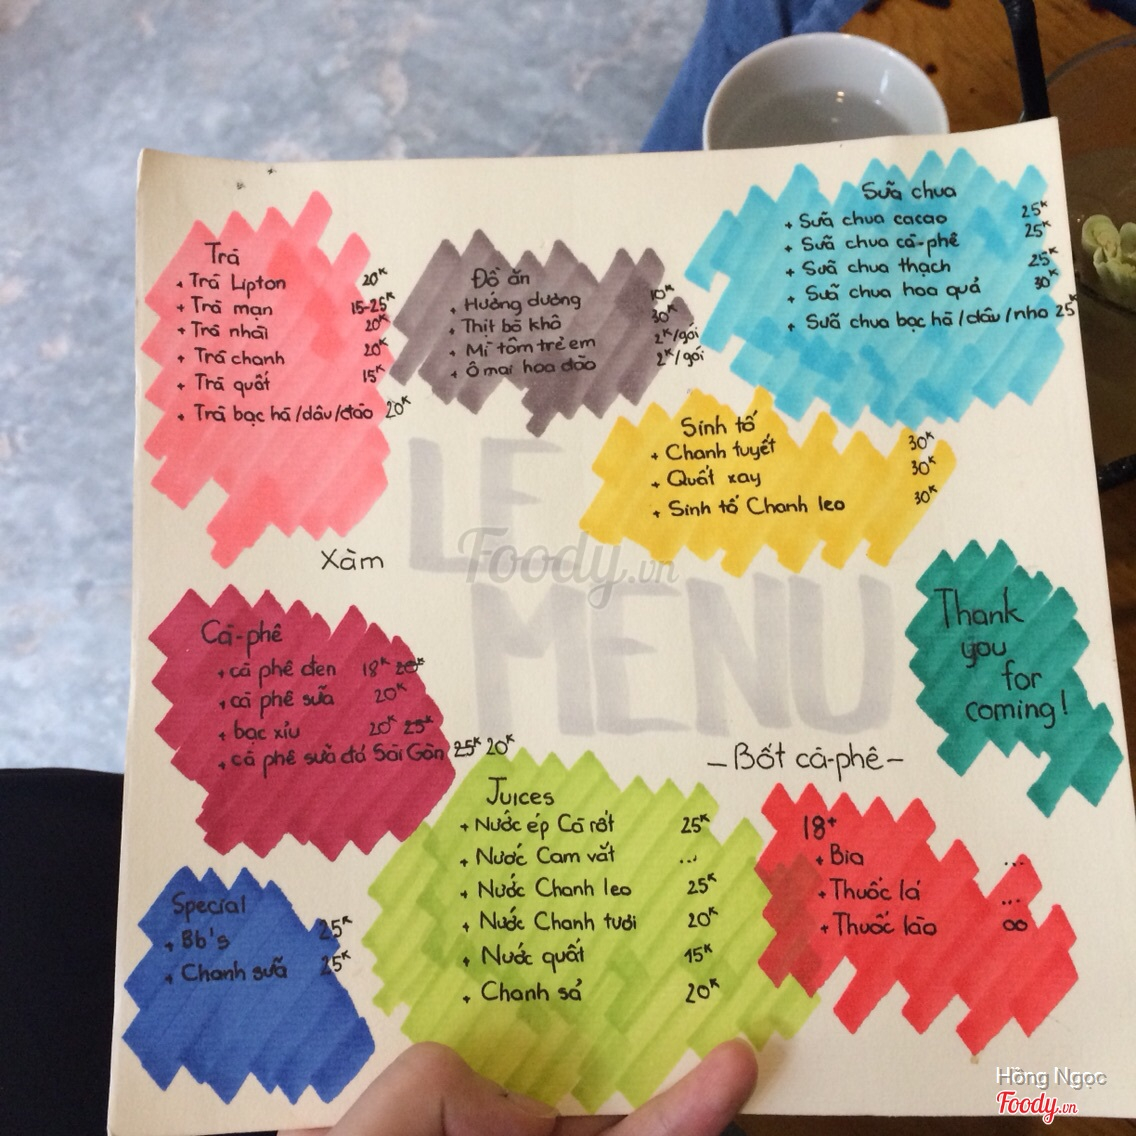 Trà
+ Trà Lipton 20K
+ Trà mạn 15-25K
+ Trà nhài 20K
+ Trà chanh 20K
+ Trà quất 15K
+ Trà bạc hà/dâu/đào 20K
Đồ ăn
+ Hướng dương 10K
+ Thịt bò khô 30K
+ Mì tôm trẻ em 2K/gói
+ Ô mai hoa đào 2K/gói
Sữa chua
+ Sữa chua cacao 25K
+ Sữa chua cà-phê 25K
+ Sữa chua thạch 25K
+ Sữa chua hoa quả 30K
+ Sữa chua bạc hà/dâu/nho 25K
Sinh tố
+ Chanh tuyết 30K
+ Quất xay 30K
+ Sinh tố Chanh leo 30K
LE
MENU
Foody.vn
Xàm
Thank
you
for
coming!
Cà-phê
+ cà phê đen 18K 20K
+ cà phê sữa 20K
+ bạc xỉu 20K 25K
+ cà phê sữa đá Sài Gòn 25K 20K
– Bốt cà-phê –
Juices
+ Nước ép Cà rốt 25K
+ Nước Cam vắt ...
+ Nước Chanh leo 25K
+ Nước Chanh tươi 20K
+ Nước quất 15K
+ Chanh sả 20K
18+
+ Bia ...
+ Thuốc lá ...
+ Thuốc lào ∞
Special
+ Bb's 25K
+ Chanh sữa 25K
Hồng Ngọc
Foody.vn